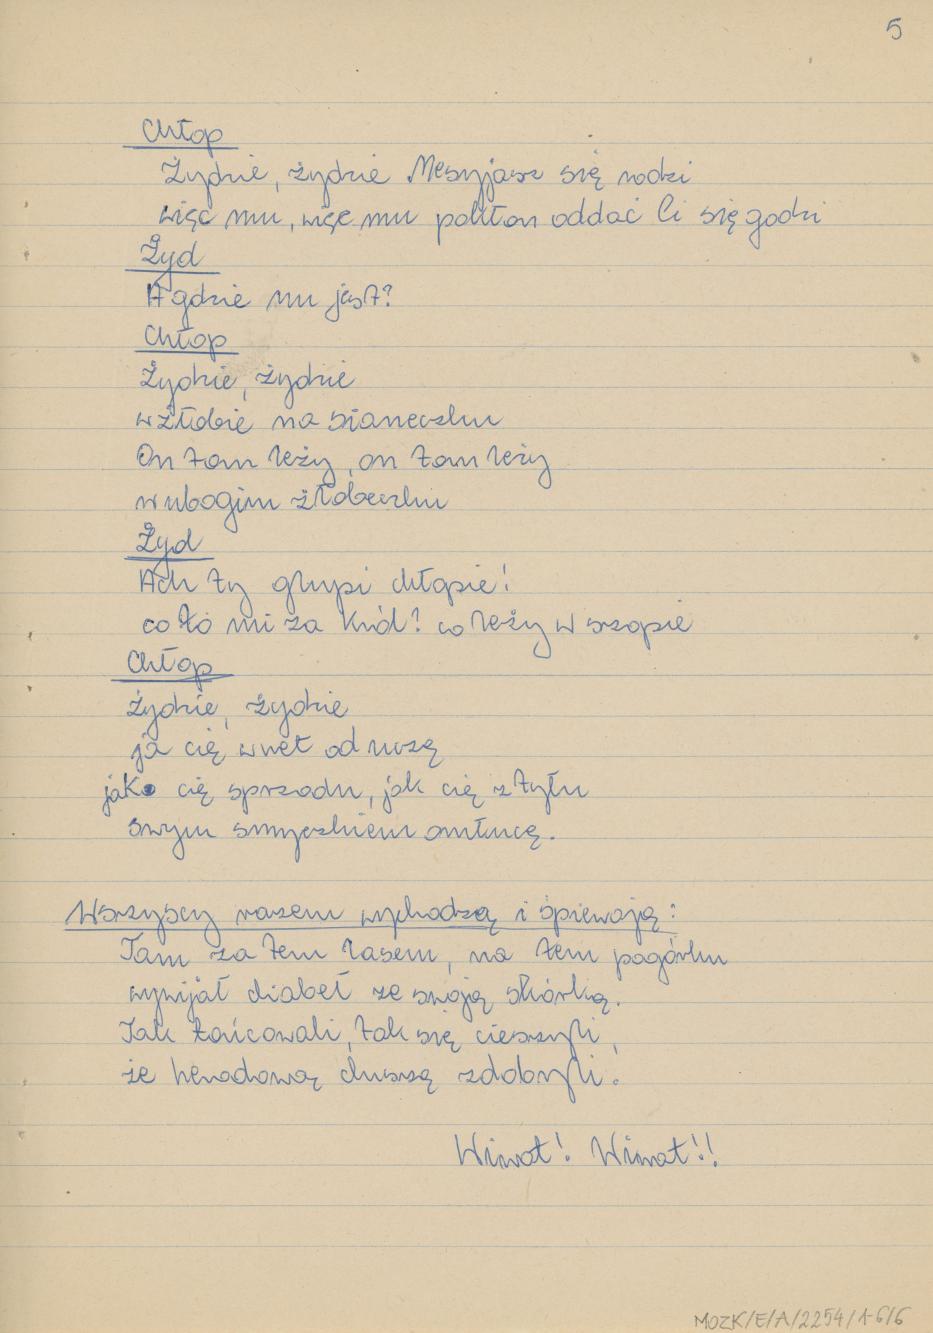 5
Chłop
Żydzie, żydzie Mesyjasz się rodzi
więc mu, więc mu pokłon oddać Ci się godzi
Żyd
A gdzie mu jest?
Chłop
Żydzie, żydzie
w żłobie na sianeczku
On tam leży, on tam leży
w ubogim żłobeczku
Żyd
Ach ty głupi chłopie!
co to mi za król? co leży w szopie
Chłop
żydzie, żydzie
ja cię wnet od uczę
jak cię sprzodu, jak cię z tyłu
swym smyczkiem omłucę.
Wszyscy razem wychodzą i śpiewają:
Tam za tem lasem, na tem pagórku
wywijał diabeł ze swoją skórką.
Tak tańcowali, tak się cieszyli,
że herodową duszą zdobyli!
Wiwat! Wiwat!!
MOZK/E/A/2254/1-6/6